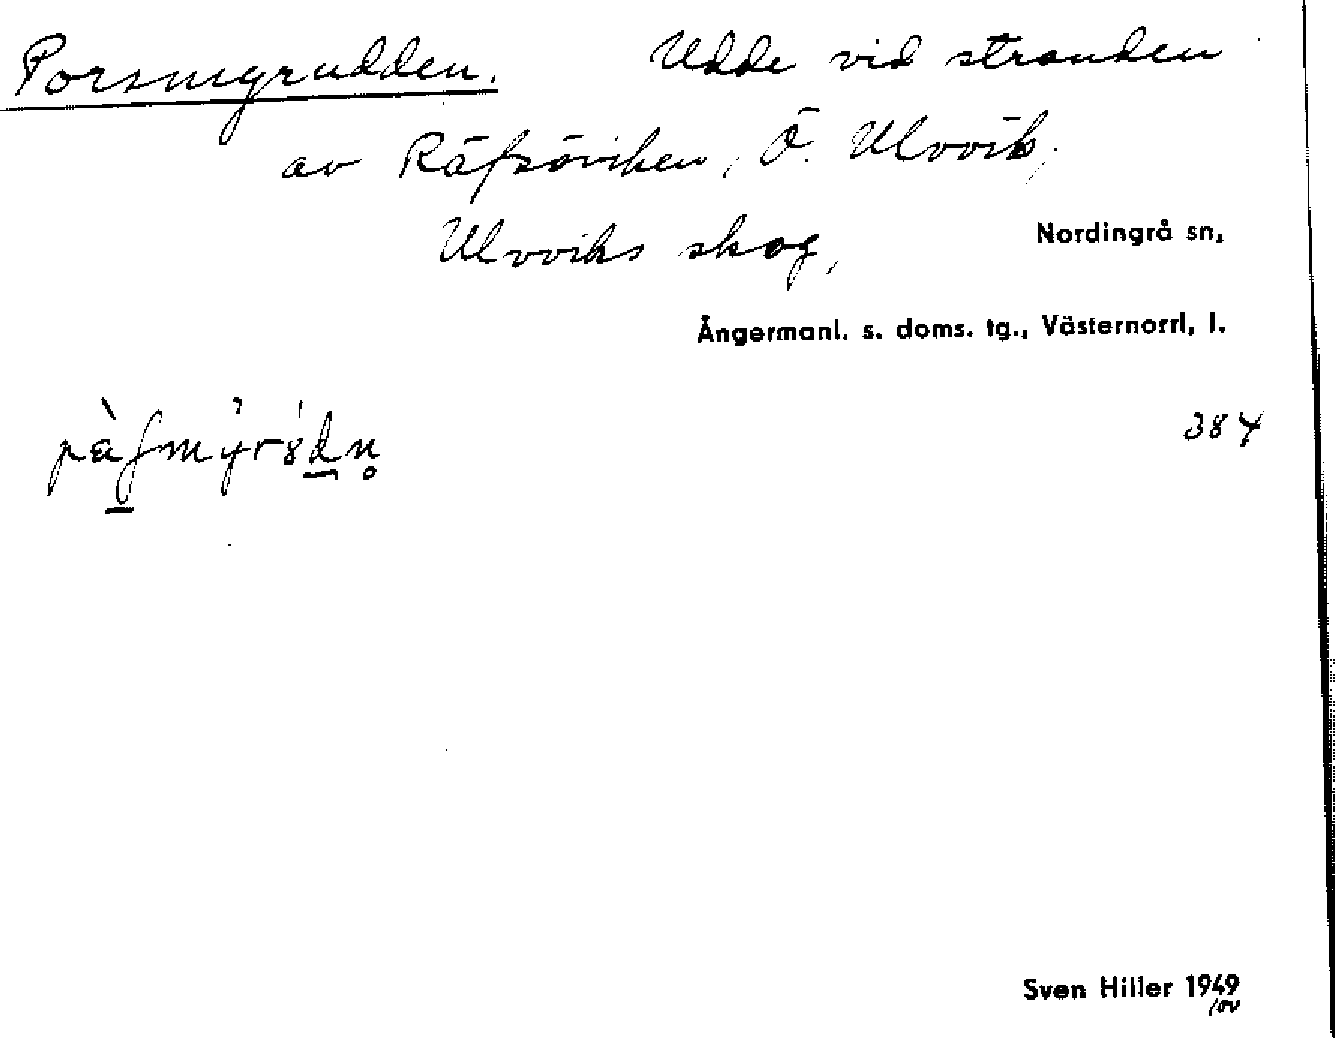 Porsmyrudden. Udde vid stranden
av Räfsöviken, Ö. Ulvvik,
Ulvviks skog, Nordingrå sn,
Ångermanl. s. doms. tg., Västernorrl. l.
384
Sven Hiller 1949